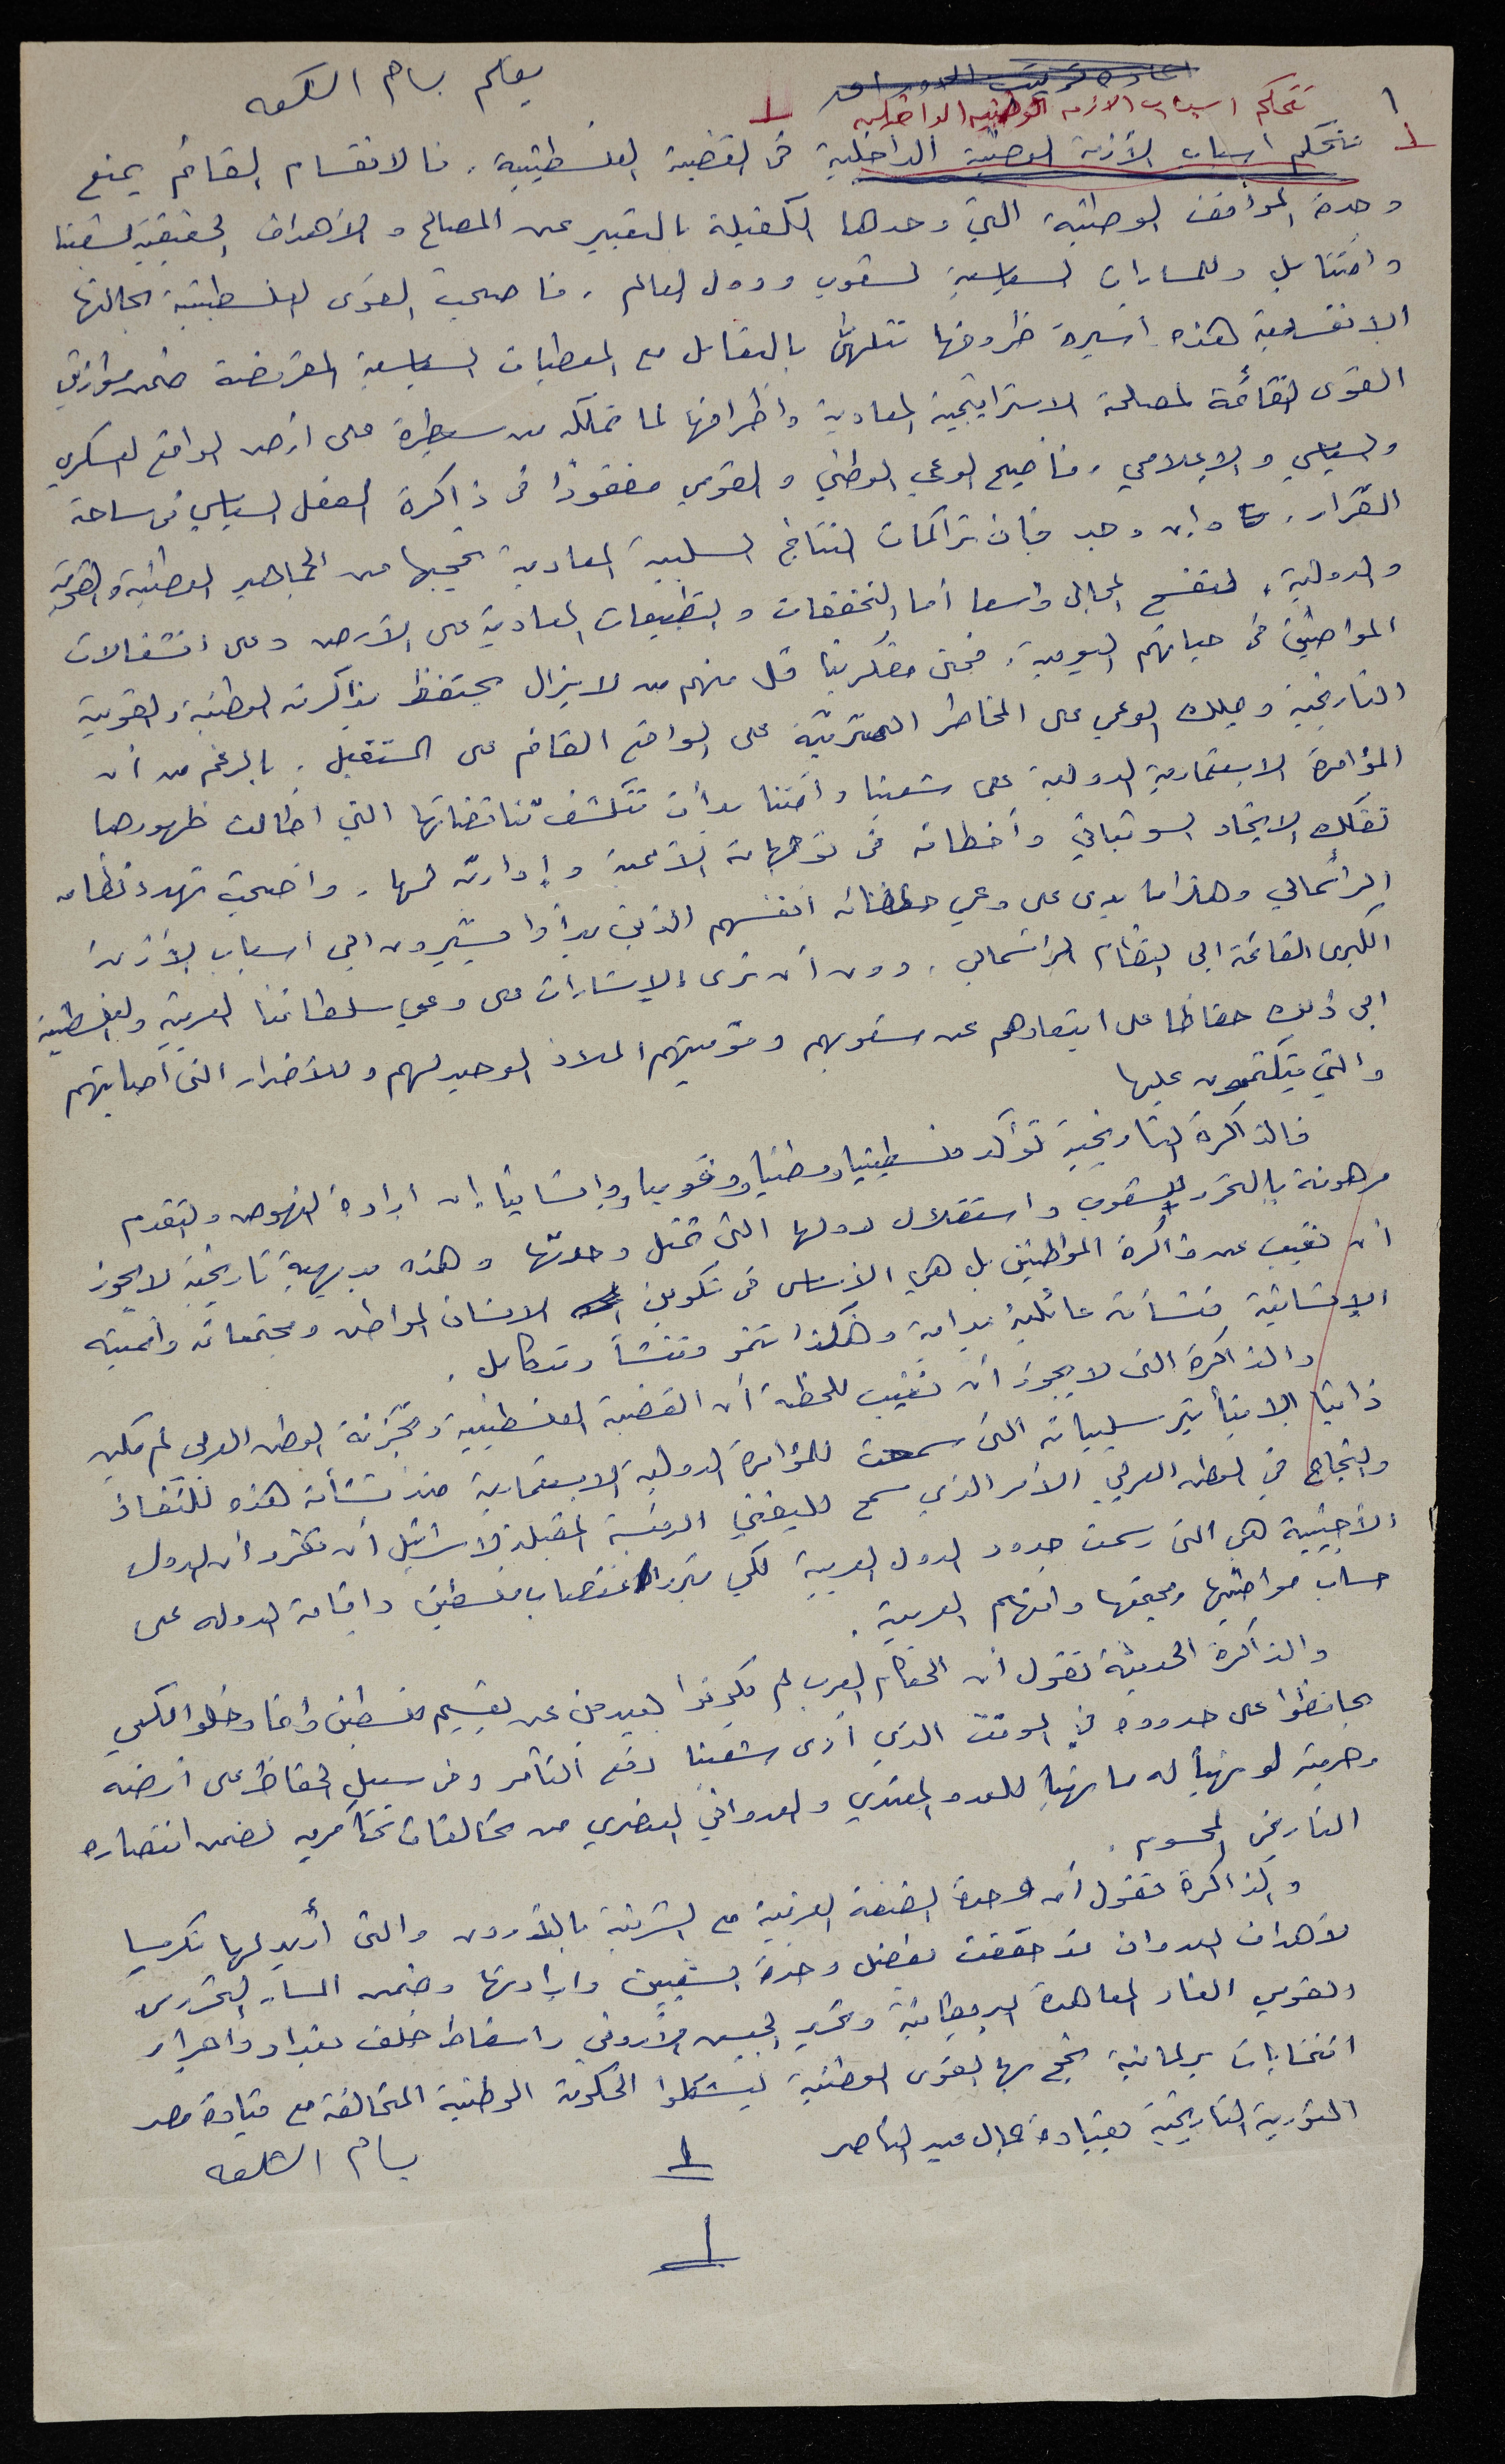 بقلم بسام الشكعه
اعادة ترتيب الاوراق
١
تتحكم اسباب الازمه الوطنيه الداخليه
١
١ تتحكم اسباب الأزمة الوطنية الداخلية في القضية الفلسطينية. فالانقسام القائم يمنع
وحدة المواقف الوطنية التي وحدها الكفيلة بالتعبير عن المصالح و الأهداف الحقيقية لشعبنا
وامتنا بل وللمسارات السياسية لشعوب ودول العالم. فاصبحت القوى الفلسطينية بحالتها
الانقسامية هذه اسيرة ظروفها تتلهى بالتعامل مع المعطيات السياسية المفروضة ضمن موازين
القوى القائمة لمصلحة الاستراتيجية المعادية واطرافها لما تملكه من سيطرة على ارض الواقع العسكري
والسياسي و الإعلامي. فأصبح الوعي الوطني و القومي مفقودًا في ذاكرة العقل السياسي في ساحة
القرار. وان وجد فبان تراكمات النتائج السلبية المعادية تحجبها عن الجماهير الوطنية والقومية
والدولية. لتفسح المجال واسعا أما التحققات و التطبيعات المعادية على الأرض وعلى انشغالات
المواطنين في حياتهم اليومية. فحتى مفكرينا قل منهم من لا يزال يحتفظ بذاكرته الوطنية والقومية
التاريخية ويملك الوعي على المخاطر المترتبة على الواقع القائم على المستقبل. بالرغم من أن
المؤامرة الاستعمارية الدولية على شعبنا وأمتنا بدأت تتكشف تناقضاتها التي اطالت ظهورها
تفكك الاتحاد السوفياتي وأخطائه في توجهاته الأممية وإدارته لها. واضحت تهدد نظامه
الرأسمالي وهذا ما بدى على وعي حلفائه انفسهم الذين بدأوا يشيرون الى اسباب الأزمة
الكبرى القائمة الى النظام الرأسمالي. دون أن نرى الإشارات على وعي سلطاتنا العربية والفلسطينية
الى ذلك حفاظا على ابتعادهم عن شعوبهم وقوميتهم الملاذ الوحيد لهم وللأضرار التي أصابتهم
والتي يتكتمون عليها
فالذاكرة التاريخية تؤكد فلسطينيا ووطنيا وقوميا وإنسانيا إن إرادة النهوض والتقدم
مرهونة بالتحرر للشعوب واستقلال دولها التي تمثل وحدتها وهذه بديهية تاريخية لا يجوز
أن تغيب عن ذاكرة المواطنين بل هي الأساس في تكوين الانسان المواطن ومجتمعاته وأمميته
الإنسانية فنشأته عائلية بداية وهكذا تنمو وتنشأ وتتكامل.
والذاكرة التي لا يجوز أن تغيب للحظة أن القضية الفلسطينية وتجزئة الوطن العربي لم تكن
ذاتيا إلا بتأثير سلبياته التي سمحت للمؤامرة الدولية الاستعمارية منذ نشأته هذه للنفاذ
والنجاح في الوطن العربي الأمر الذي سمح لليفني الرئيسة المقبلة لاسرائيل أن تقرر أن الدول
الأجنبية هي التي رسمت حدود الدول العربية لكي تبرر اغتصاب فلسطين واقامة الدولة على
حساب مواطنيها ومجتمعها وامتهم العربية.
والذاكرة الحديثة تقول أن الحكام العرب لم يكونوا بعيدين عن تقسيم فلسطين وانما دخلوا لكي
يحافظوا على حدوده في الوقت الذي أرى شعبنا دفع الثأمر وفي سبيل الحفاظ على أرضه
وحريته لو تهيأ له ما تهيأ للعدو المعتدي والعدواني العنصري من تحالفات تآمرية لضمن انتصاره
التاريخي المحسوم.
والذاكرة تقول أن وحدة الضفة الغربية مع الشرقية بالأردن والتي أُريد لها تكريسا
لأهداف العدوان قد حققت بفضل وحدة الشعبين وإرادتها وضمن المسار التحرري
والقومي الغاء المعاهدة البريطانية وتحرير الجيش الأردني واسقاط حلف بغداد واجراء
انتخابات برلمانية نجح بها القوى الوطنية ليشكلوا الحكومة الوطنية المتحالفة مع قيادة مصر
الثورية التاريخية بقيادة جمال عبد الناصر
١
بسام الشكعه
١